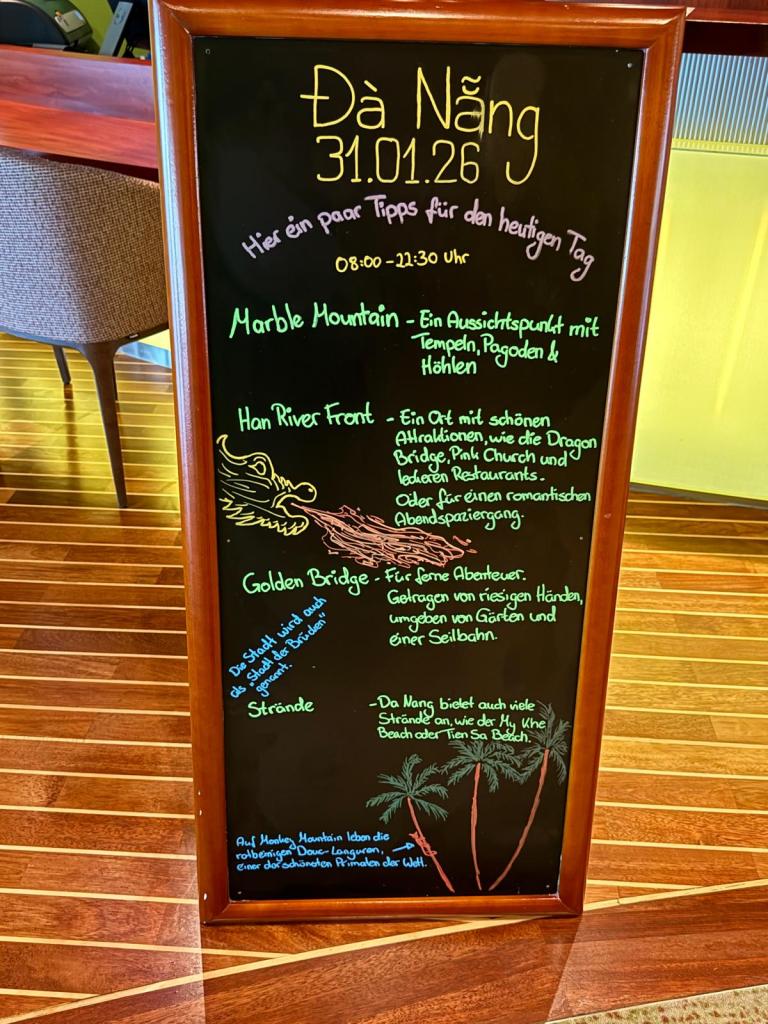 Đà Nẵng
31.01.26
Hier ein paar Tipps für den heutigen Tag
08:00-22:30 Uhr
Marble Mountain - Ein Aussichtspunkt mit
Tempeln, Pagoden &
Höhlen
Han River Front - Ein Ort mit schönen
Attraktionen, wie die Dragon
Bridge, Pink Church und
leckeren Restaurants.
Oder für einen romantischen
Abendspaziergang.
Golden Bridge - Für ferne Abenteuer.
Getragen von riesigen Händen,
umgeben von Gärten und
einer Seilbahn.
Die Stadt wird auch
als "Stadt der Brücken"
genannt.
Strände - Da Nang bietet auch viele
Strände an, wie der My Khe
Beach oder Tien Sa Beach.
Auf Monkey Mountain leben die
rotbeinigen Douc-Languren,
einer der schönsten Primaten der Welt.